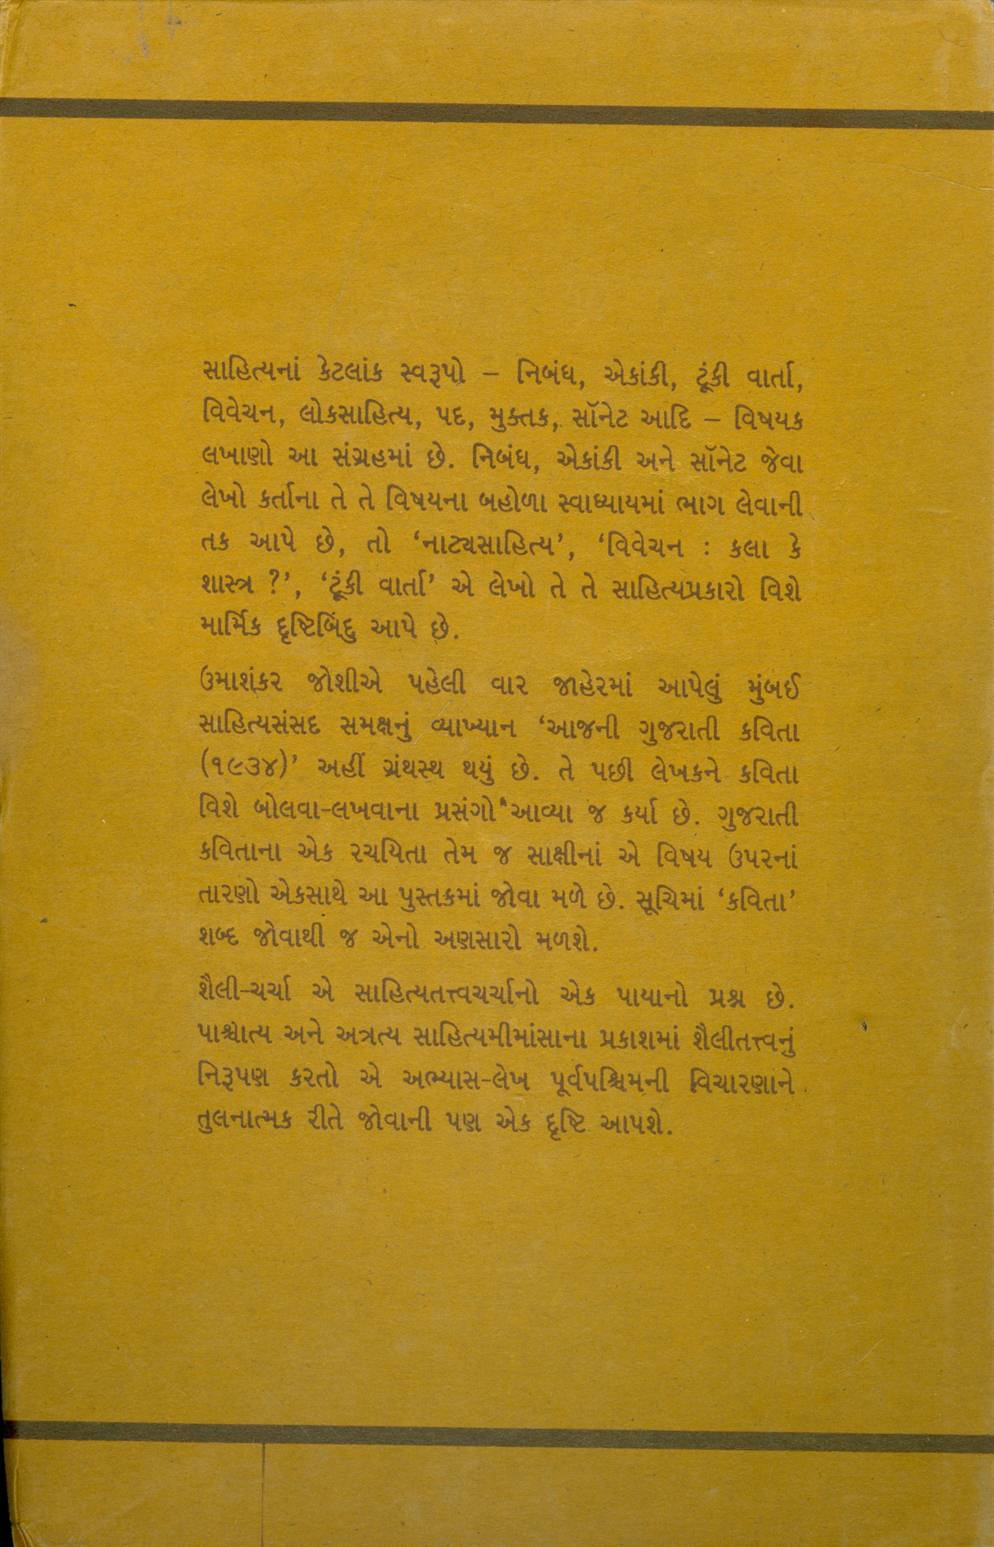 સાહિત્યનાં કેટલાંક સ્વરૂપો – નિબંધ, એકાંકી, ટૂંકી વાર્તા,
વિવેચન, લોકસાહિત્ય, પદ, મુક્તક, સૉનેટ આદિ – વિષયક
લખાણો આ સંગ્રહમાં છે. નિબંધ, એકાંકી અને સૉનેટ જેવા
લેખો કર્તાના તે તે વિષયના બહોળા સ્વાધ્યાયમાં ભાગ લેવાની
તક આપે છે, તો ‘નાટ્યસાહિત્ય’, ‘વિવેચન : કલા કે
શાસ્ત્ર ?’, ‘ટૂંકી વાર્તા’ એ લેખો તે તે સાહિત્યપ્રકારો વિશે
માર્મિક દૃષ્ટિબિંદુ આપે છે.
ઉમાશંકર જોશીએ પહેલી વાર જાહેરમાં આપેલું મુંબઈ
સાહિત્યસંસદ સમક્ષનું વ્યાખ્યાન ‘આજની ગુજરાતી કવિતા
(૧૯૩૪)’ અહીં ગ્રંથસ્થ થયું છે. તે પછી લેખકને કવિતા
વિશે બોલવા-લખવાના પ્રસંગો આવ્યા જ કર્યા છે. ગુજરાતી
કવિતાના એક રચયિતા તેમ જ સાક્ષીનાં એ વિષય ઉપરનાં
તારણો એકસાથે આ પુસ્તકમાં જોવા મળે છે. સૂચિમાં ‘કવિતા’
શબ્દ જોવાથી જ એનો અણસારો મળશે.
શૈલી-ચર્ચા એ સાહિત્યતત્ત્વચર્ચાનો એક પાયાનો પ્રશ્ન છે.
પાશ્ચાત્ય અને અત્રત્ય સાહિત્યમીમાંસાના પ્રકાશમાં શૈલીતત્ત્વનું
નિરૂપણ કરતો એ અભ્યાસ-લેખ પૂર્વપશ્ચિમની વિચારણાને
તુલનાત્મક રીતે જોવાની પણ એક દૃષ્ટિ આપશે.